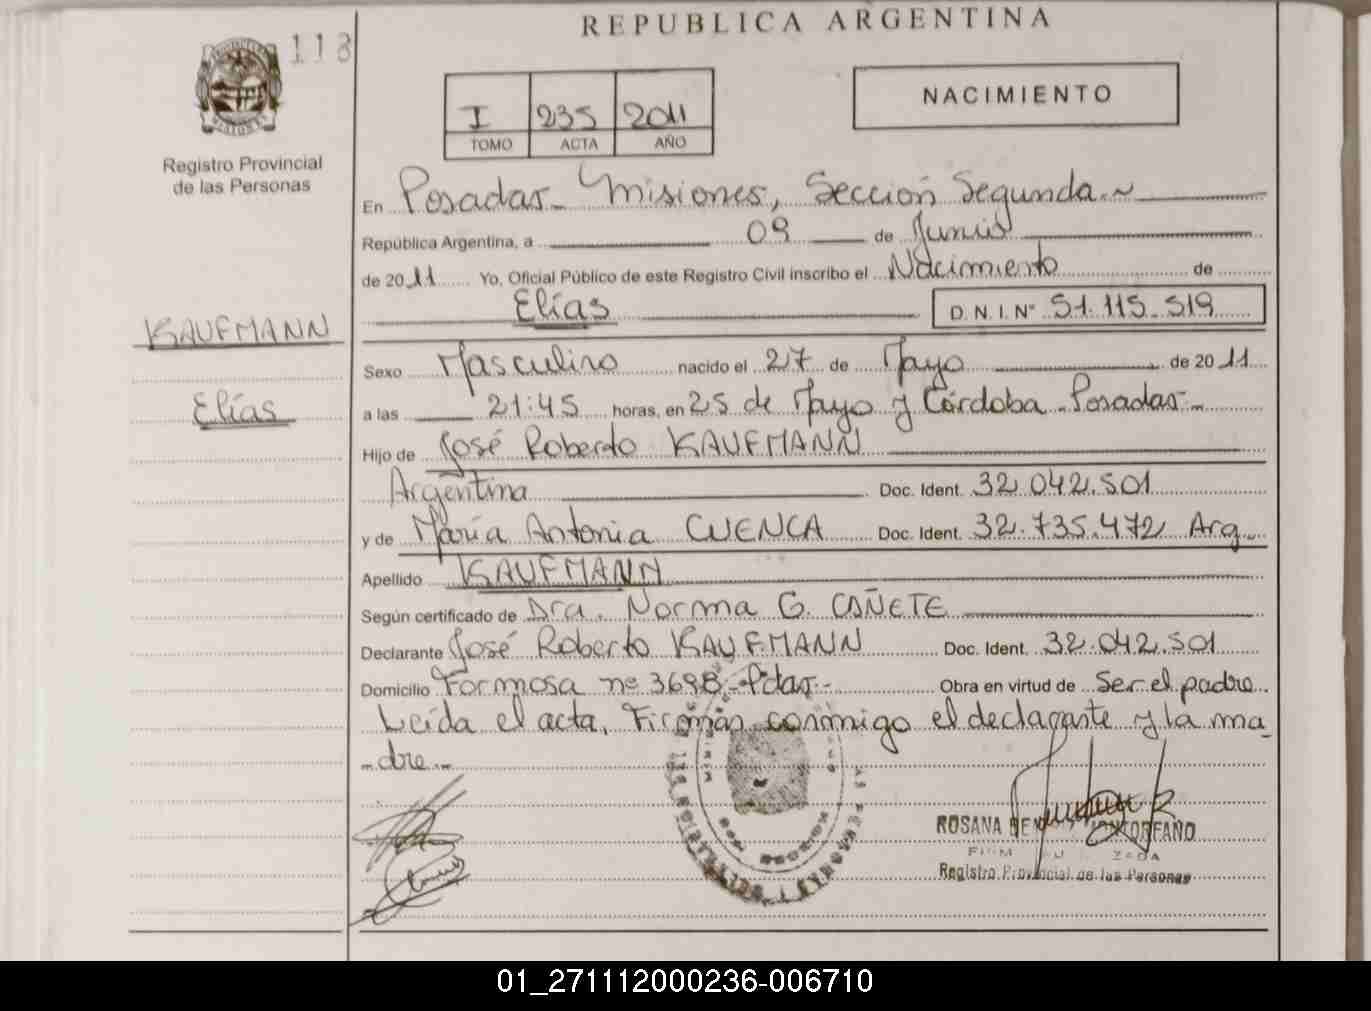 REPUBLICA ARGENTINA
113
Registro Provincial
de las Personas
I 235 2011
TOMO ACTA AÑO
NACIMIENTO
En Posadas - Misiones, Sección Segunda.-
República Argentina, a 09 de Junio
de 2011 Yo, Oficial Público de este Registro Civil inscribo el Nacimiento de
Elías D.N.I. Nº 51.115.519
KAUFMANN
Elías
Sexo Masculino nacido el 27 de Mayo de 2011
a las 21:45 horas, en 25 de Mayo y Córdoba - Posadas -
Hijo de José Roberto KAUFMANN
Argentina Doc. Ident. 32.042.501
y de María Antonia CUENCA Doc. Ident. 32.735.472 Arg.
Apellido KAUFMANN
Según certificado de Dra. Norma G. CAÑETE
Declarante José Roberto KAUFMANN Doc. Ident. 32.042.501
Domicilio Formosa nº 3698 - Pdas - Obra en virtud de Ser el padre
Leída el acta, Firman conmigo el declarante y la ma-
dre.-
ROSANA
Registro Provincial de las Personas
01_271112000236-006710